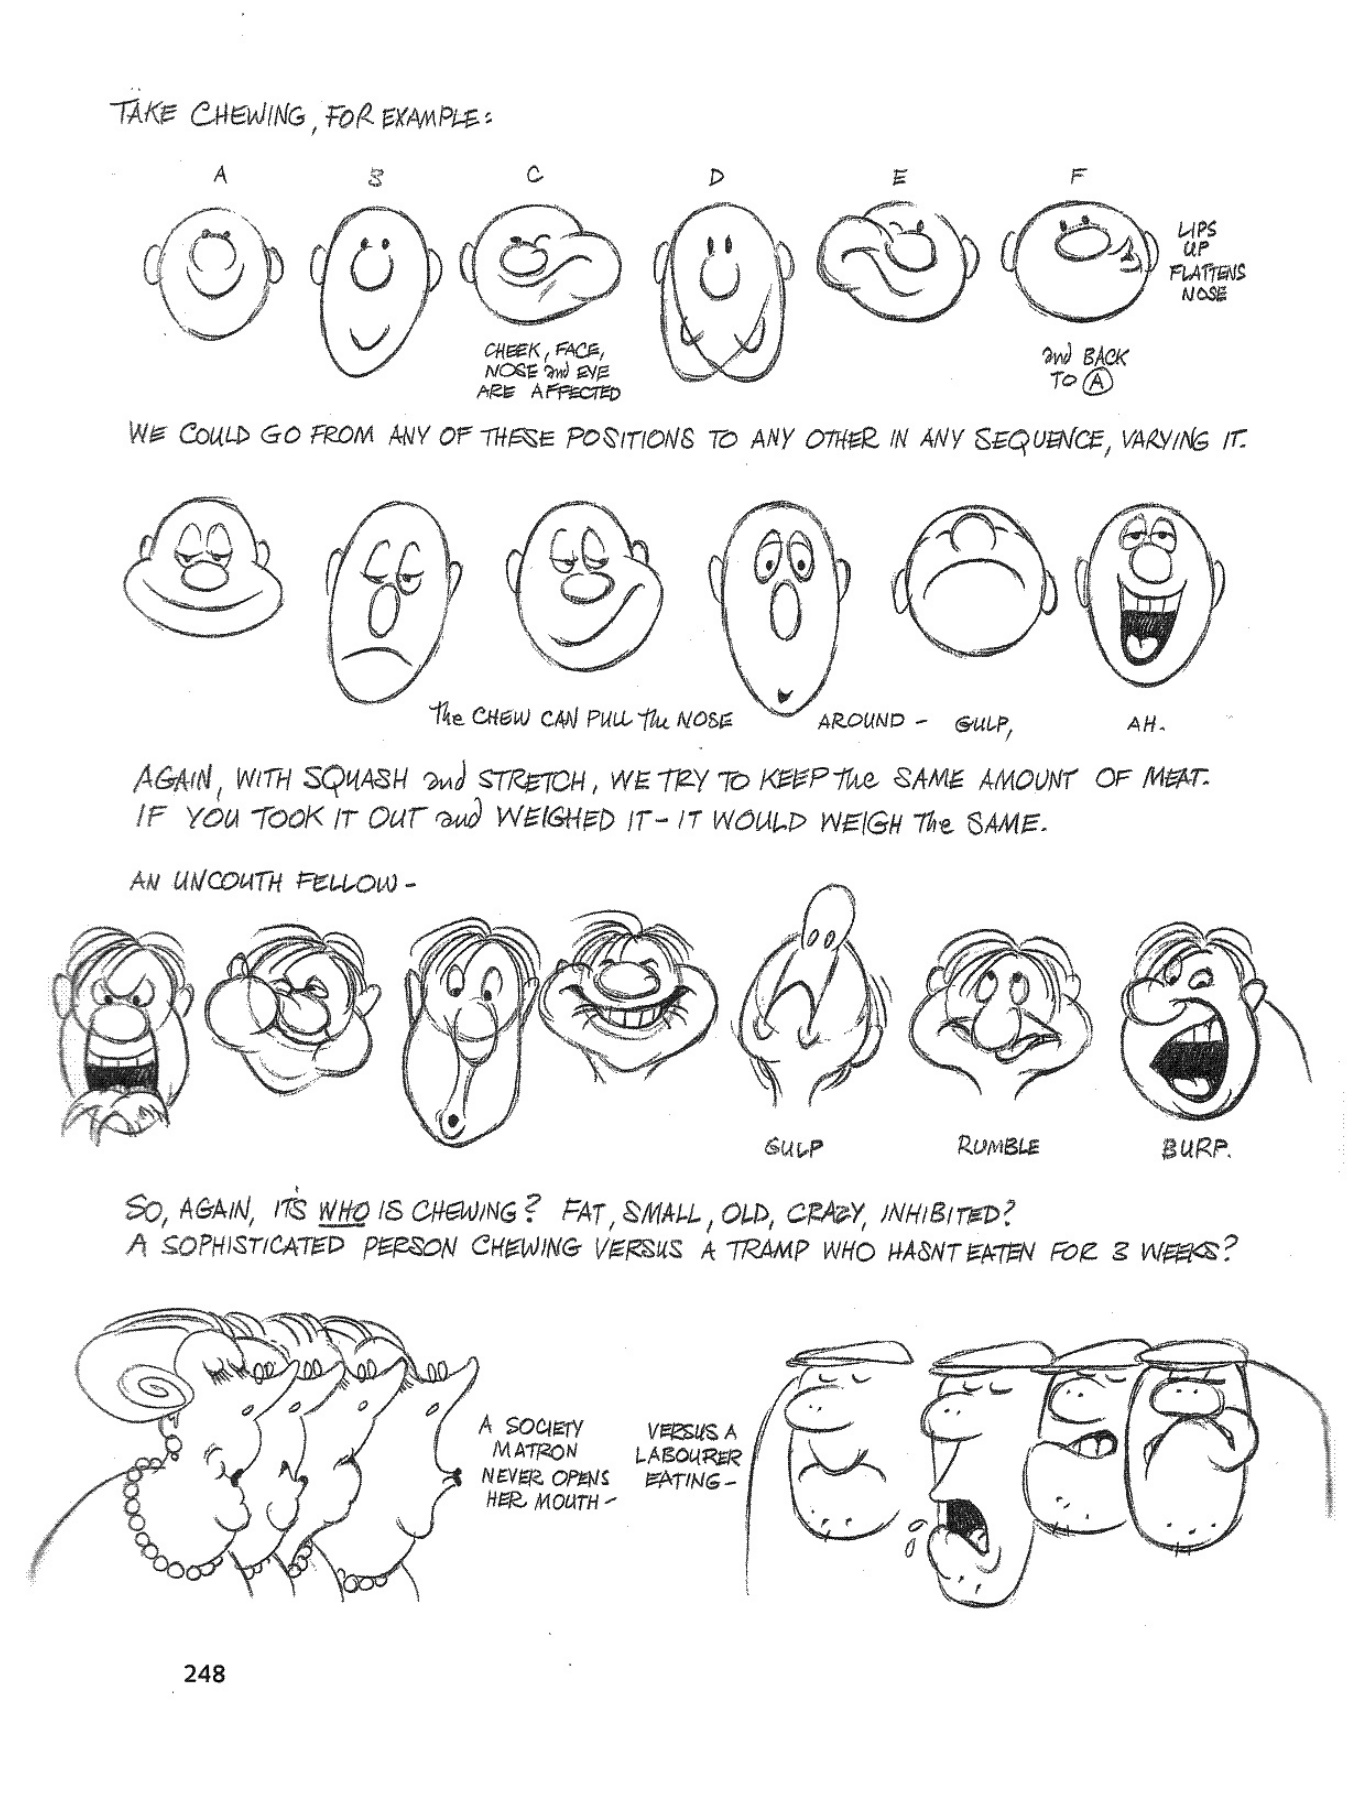 TAKE CHEWING, FOR EXAMPLE:
A B C D E F
LIPS
UP
FLATTENS
NOSE
CHEEK, FACE,
NOSE and EYE
ARE AFFECTED
and BACK
TO A
WE COULD GO FROM ANY OF THESE POSITIONS TO ANY OTHER IN ANY SEQUENCE, VARYING IT.
The CHEW CAN PULL The NOSE AROUND - GULP, AH.
AGAIN, WITH SQUASH and STRETCH, WE TRY TO KEEP The SAME AMOUNT OF MEAT.
IF YOU TOOK IT OUT and WEIGHED IT - IT WOULD WEIGH The SAME.
AN UNCOUTH FELLOW -
GULP RUMBLE BURP.
SO, AGAIN, IT'S WHO IS CHEWING? FAT, SMALL, OLD, CRAZY, INHIBITED?
A SOPHISTICATED PERSON CHEWING VERSUS A TRAMP WHO HASNT EATEN FOR 3 WEEKS?
A SOCIETY
MATRON
NEVER OPENS
HER MOUTH -
VERSUS A
LABOURER
EATING -
248